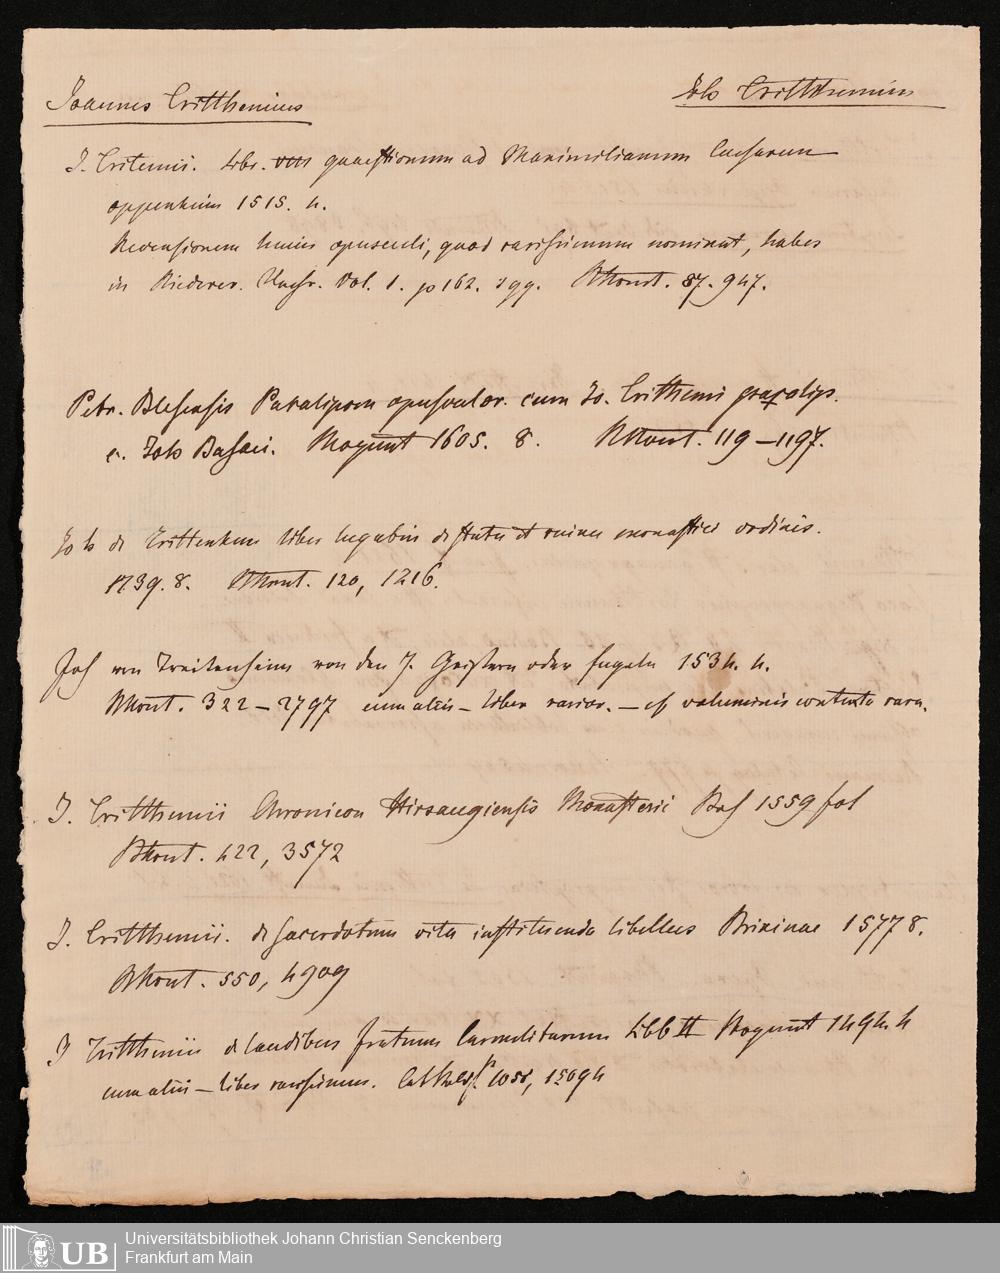 Joannes Tritthemius
Joh Tritthemius
J. Tritemii. Libr. VIII quaestionum ad Maximilianum Caesarem
oppenheim 1515. 4.
Recensionem huius opusculi, quod rarissimum nominat, habes
in Riederer. Nachr. Vol. 1. p 162. sqq. Bkont. 87. 947.
Petr. Blesensis Paralipom opusculor. cum Jo. Trithemii paralip.
c. Joh Busaei. Mogunt 1605. 8. Bkont. 119 – 1197.
Joh de Trittenhem liber lugubris de statu et ruina monastici ordinis.
1739. 8. Bkont. 120, 1216.
Joh von Trittenheim von den 7. Geistern oder Engeln 1534. 4.
Bkont. 322 – 2797 cum aliis – liber rarior. – voluminis contenta rara.
J. Tritthemii Chronicon Hirsaugiensis Monasterii Bas 1559 fol
Bkont. 422, 3572
J. Tritthemii. de sacerdotum vita instituenda libellus Brixinae 1577 8.
Bkont. 550, 4909
J Tritthemii de laudibus fratrum Carmelitarum Libb II Mogunt 1494. 4
cum aliis – liber rarissimus. Cat 1058, 15694
Universitätsbibliothek Johann Christian Senckenberg
Frankfurt am Main
UB